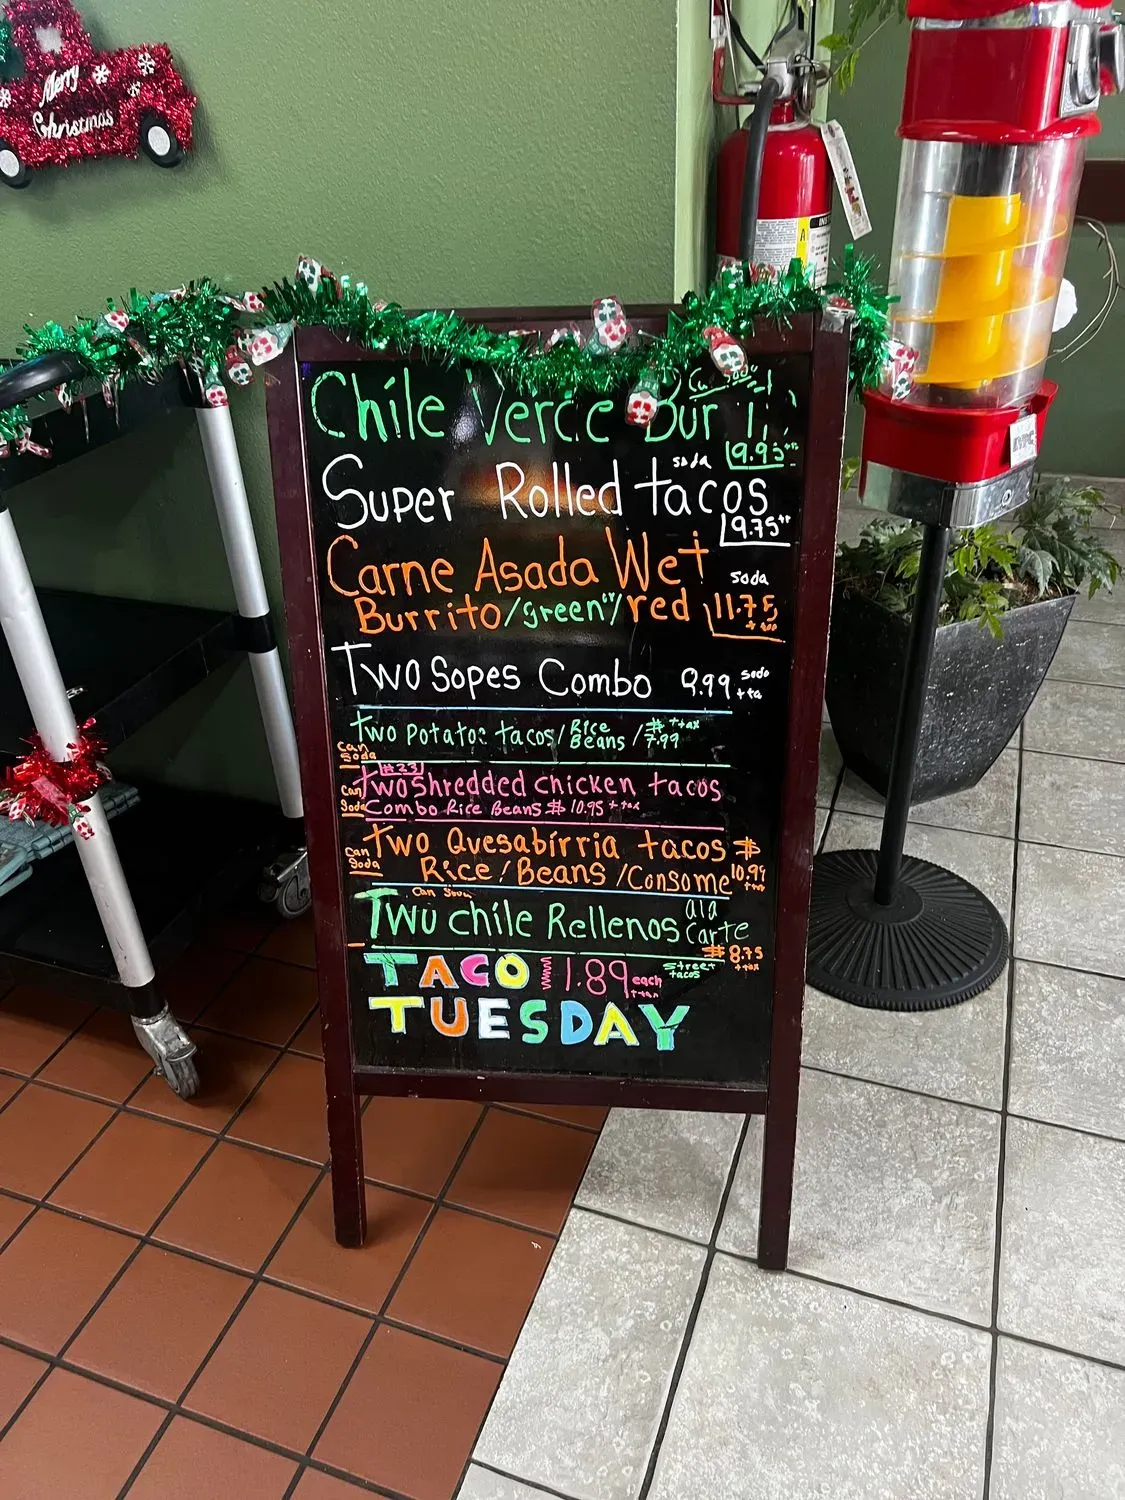 Merry
Christmas
Chile Verce Bur
soda 9.95
Super Rolled tacos
9.75
Carne Asada Wet
soda
Burrito/green/red 11.75
Two Sopes Combo 9.99 soda
+ta
Two Potatoe tacos/Rice Beans/$ 7.99 +tax
can soda
#23
can soda Two Shredded chicken tacos
Combo Rice Beans $ 10.95 +tax
can soda Two Quesabirria tacos $
Rice/Beans/Consome 10.99
Can Soda
Two chile Rellenos ala carte
$8.75
+tax
TACO 1.89 each +tax street tacos
TUESDAY